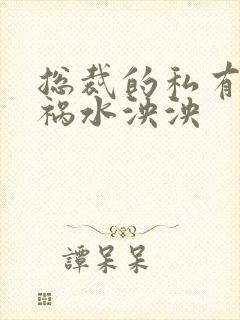 总裁的私有
祸水泱泱
譚呆呆